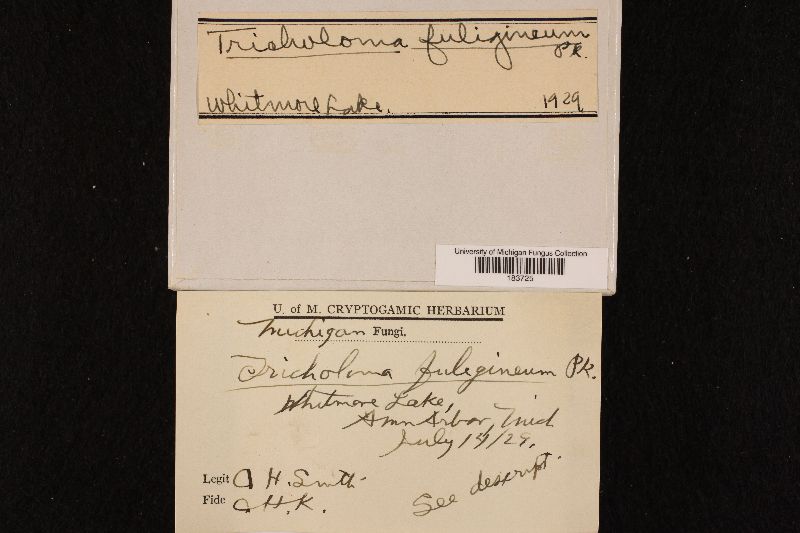 Tricholoma fuligineum
Pk.
Whitmore Lake. 1929
University of Michigan Fungus Collection
183725
U. of M. CRYPTOGAMIC HERBARIUM
Michigan Fungi.
Tricholoma fuligineum Pk.
Whitmore Lake,
Ann Arbor, Mich
July /29.
Legit A H. Smith
Fide C.H.K.
See descript.